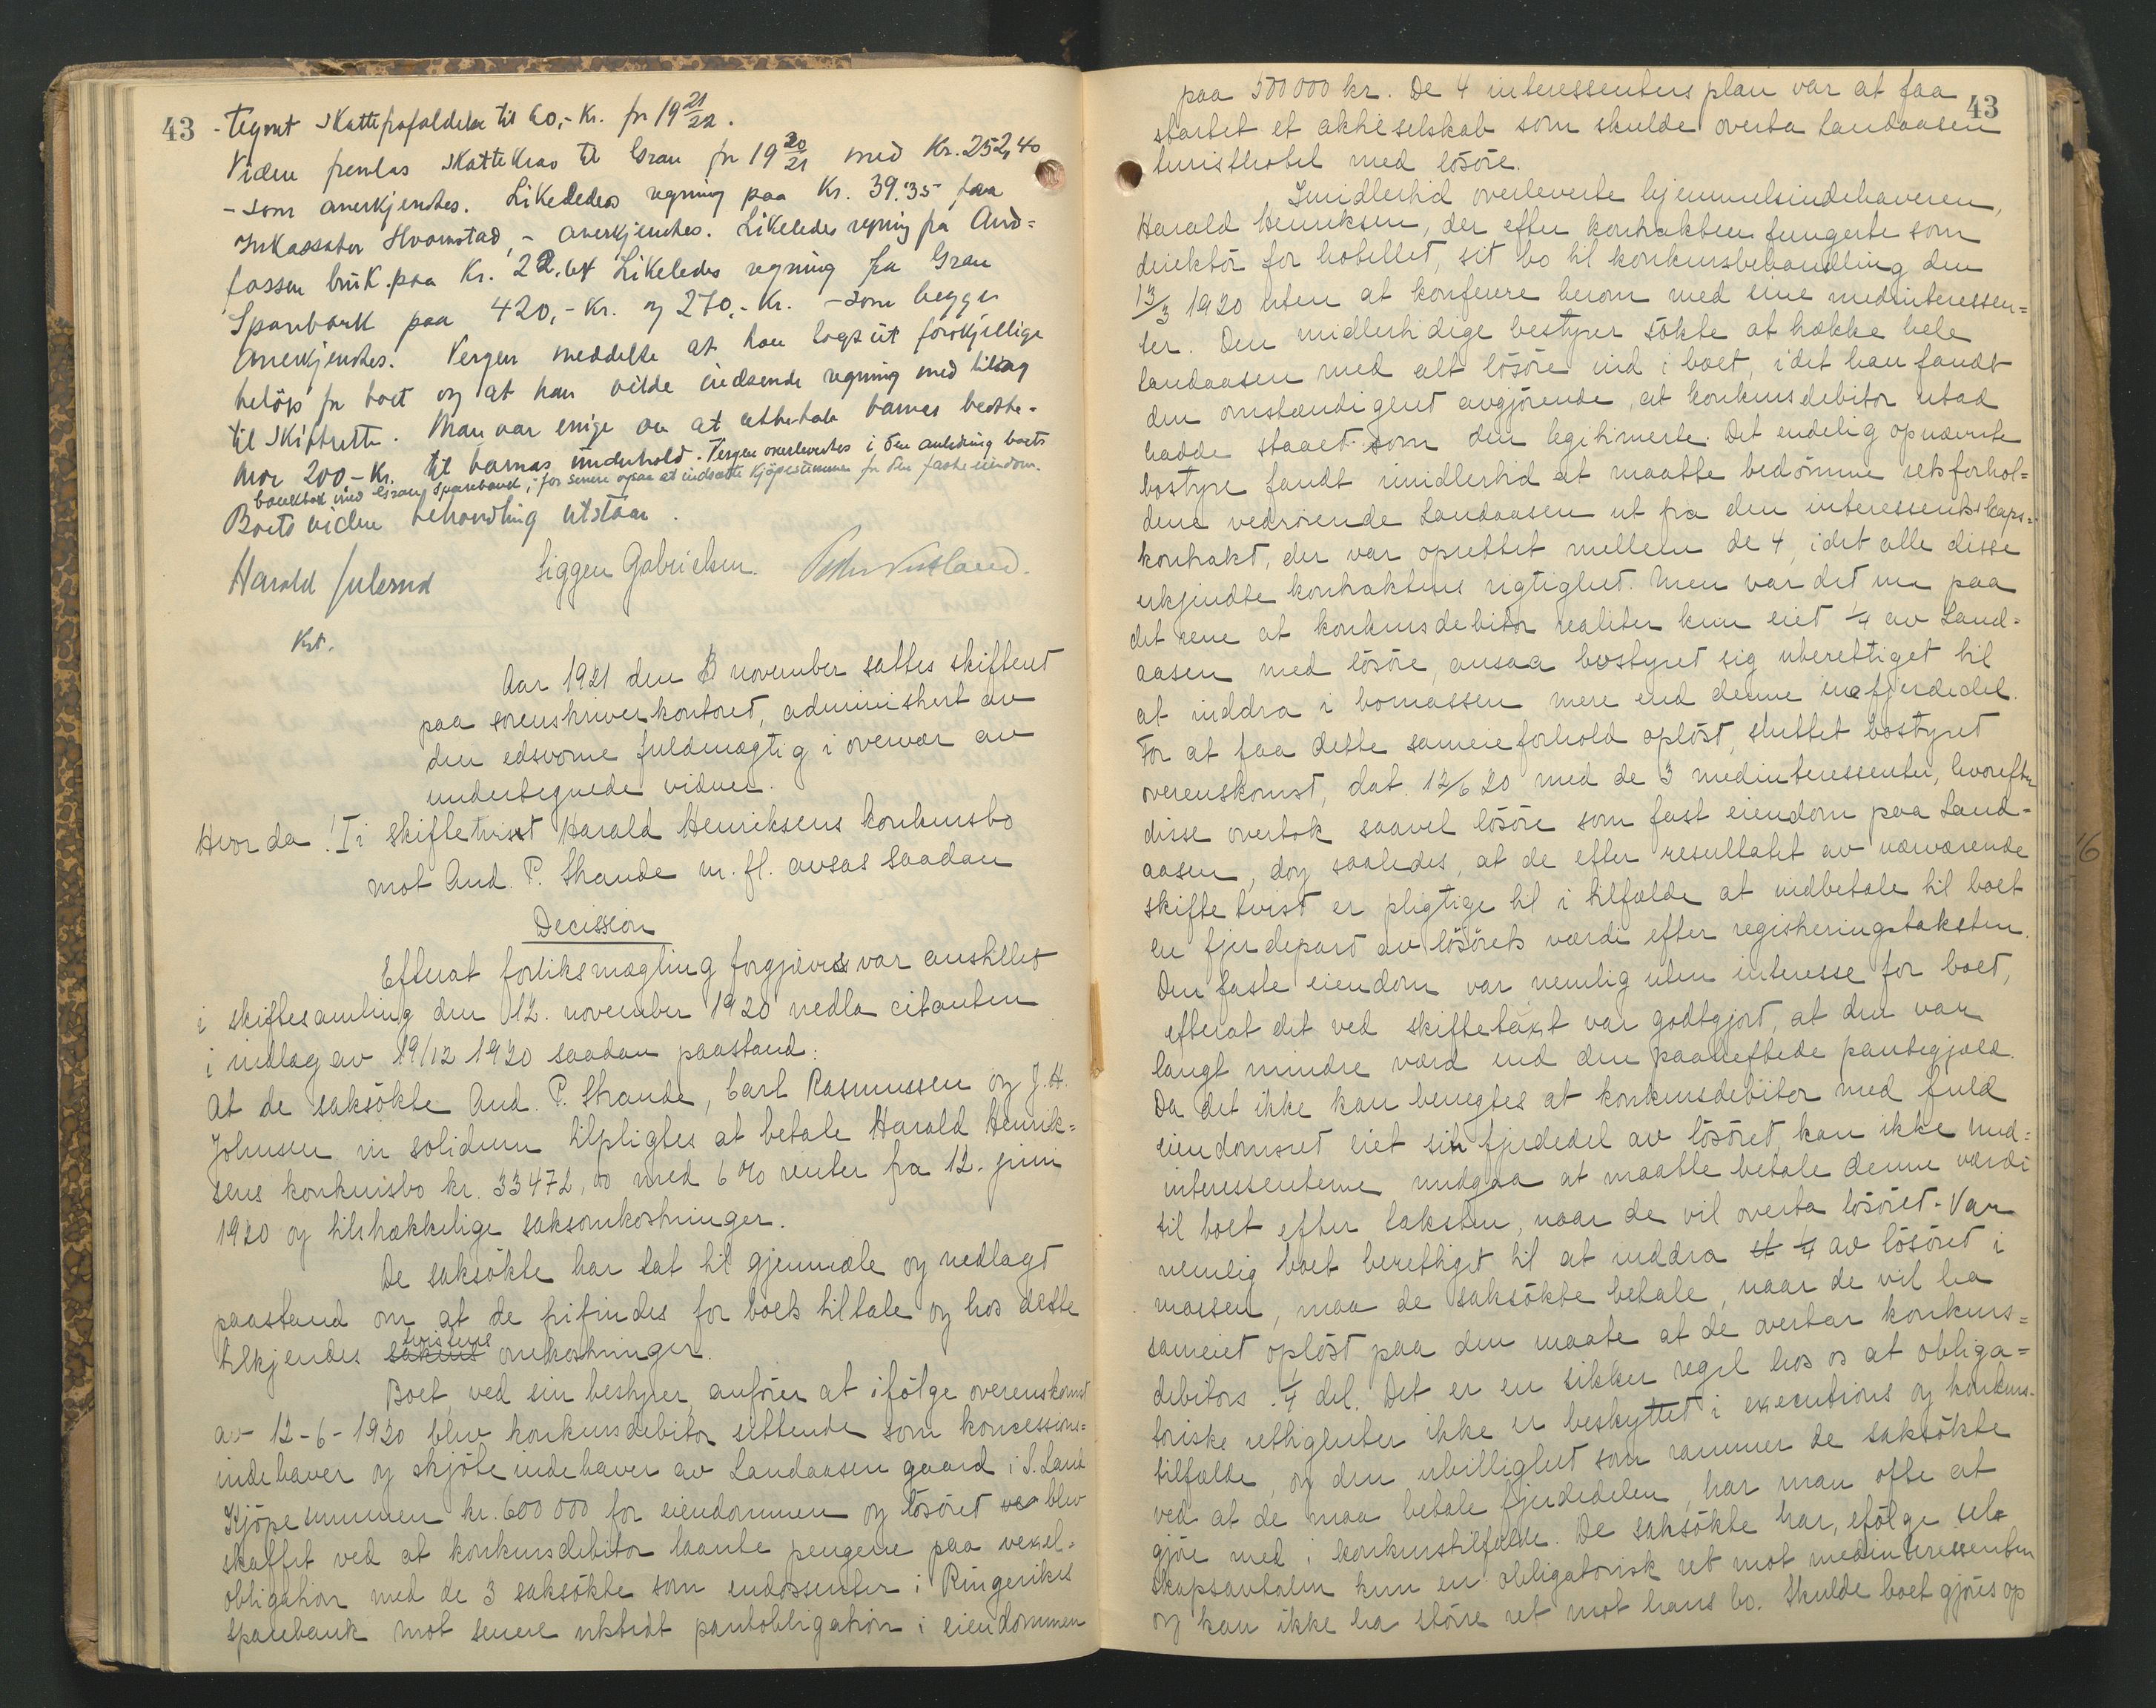 43
- tegnet Skattefrafaldelse til 60,- Kr. for 19 21/22.
Viden fremlas Skattekrav til Gran for 19 20/21 med Kr. 252,40
- som anerkjendtes. Likeledes regning paa Kr. 39.35 fra
Inkassator Hvamstad, - anerkjendtes. Likeledes regning fra And=
fossen bruk. paa Kr. 22,64 Likeledes regning fra Gran
Sparebank paa 420,- Kr. og 270,- Kr. - som begge
anerkjendtes. Vergen meddelte at han lagt ut forskjellige
beløp for boet og at han vilde indsende regning med bilag
til Skifteretten. Man var enige om at utbetale barnas bedste-
mor 200 - Kr. til barnas underhold. Vergen overleveredes i den anledning boets
bankbok med Gran Sparebank, - for senere ogsaa at indsætte Kjøpesummen for den faste eiendom.
Boets videre behandling utstaar.
Harald Julsrud Siggen Gabrielsen. Peder Vestland.
Kst.
Aar 1921 den 8 november sattes skifteret
paa sorenskriverkontoret, administrert av
den edsvorne fuldmægtig i overvær av
undertegnede vidner.
Hvor da! I i skiftetvist Harald Henriksens konkursbo
mot And. P. Strande m. fl. avsas saadan
Decission
Efterat forliksmægling forgjæves var anstillet
i skiftesamling den 12. november 1920 nedla citanten
i indlæg av 19/12 1920 saadan paastand:
At de saksökte And. P. Strande, Carl Rasmussen og J. H.
Johnsen in solidum tilpligtes at betale Harald Henrik=
sens konkursbo kr. 33472,00 med 6 % renter fra 12. juni
1920 og tilstrækkelige saksomkostninger.
De saksökte har tat til gjenmæle og nedlagt
paastand om at de frifindes for boets tiltale og hos dette
tvistens
tilkjendes sakens omkostninger.
Boet, ved sin bestyrer, anförer at ifölge overenskomst
av 12-6-1920 blev konkursdebitor sittende som koncessions=
indehaver og skjöteindehaver av Landaasen gaard i S. Land
Kjöpesummen kr. 600 000 for eiendommen og lösöret va blev
skaffet ved at konkursdebitor laante pengene paa vexel=
obligation med de 3 saksökte som endossenter i Ringerikes
sparebank mot senere utstedt pantobligation i eiendommen
43
paa 500 000 kr. De 4 interessenters plan var at faa
startet et aktieselskab som skulde overta Landaasen
turisthotel med lösöre.
Imidlertid overleverte hjemmelsindehaveren,
Harald Henriksen, der efter kontrakten fungerte som
direktör for hotellet, sit bo til konkursbehandling den
13/3 1920 uten at konferere herom med sine medinteressen=
ter. Den midlertidige bestyrer sökte at trække hele
Landaasen med alt lösöre ind i boet, idet han fandt
den omstændighet avgjörende, at konkursdebitor utad
hadde staaet som den legitimerte. Det endelig opnævnte
bostyre fandt imidlertid at maatte bedömme retsforhol=
dene vedrörende Landaasen ut fra den interessentskaps=
kontrakt, der var oprettet mellem de 4, idet alle disse
erkjendte kontraktens rigtighet. Men var det nu paa
det rene at konkursdebitor realiter kun eiet 1/4 av Land=
aasen med lösöre, ansaa bostyret sig uberettiget til
at inddra i bomassen mere end denne enefjerdedel.
For at faa dette sameieforhold oplöst, sluttet bostyret
overenskomst, dat. 12/6 20 med de 3 medinteressenter, hvorefter
disse overtok saavel lösöre som fast eiendom paa Land=
aasen, dog saaledes, at de efter resultatet av nærværende
skiftetvist er pligtige til i tilfælde at indbetale til boet
en fjerdepart av lösörets værdi efter registreringstaksten.
Den faste eiendom var nemlig uten interesse for boet,
efterat det ved skiftetaxt var godtgjort, at den var
langt mindre værd end den paaheftede pantegjæld.
Da det ikke kan benegtes at konkursdebitor med fuld
eiendomsret eiet sin fjerdedel av lösöret, kan ikke med=
interessenterne undgaa at maatte betale denne værdi
til boet efter taksten, naar de vil overta lösöret. Var
nemlig boet berettiget til at inddra et 1/4 av lösöret i
massen, maa de saksökte betale, naar de vil ha
sameiet oplöst paa den maate at de overtar konkurs=
debitors 1/4 del. Det er en sikker regel hos os at obliga=
toriske rettigheter ikke er beskyttet i executions og konkurs-
tilfælde, og den ubillighet som rammer de saksökte
ved at de maa betale fjerdedelen, har man ofte at
gjöre med i konkurstilfælde. De saksökte har, efölge sel=
skapsavtalen kun en obligatorisk ret mot medinteressenten
og kan ikke ha större ret mot hans bo. Skulde boet gjöres op
16